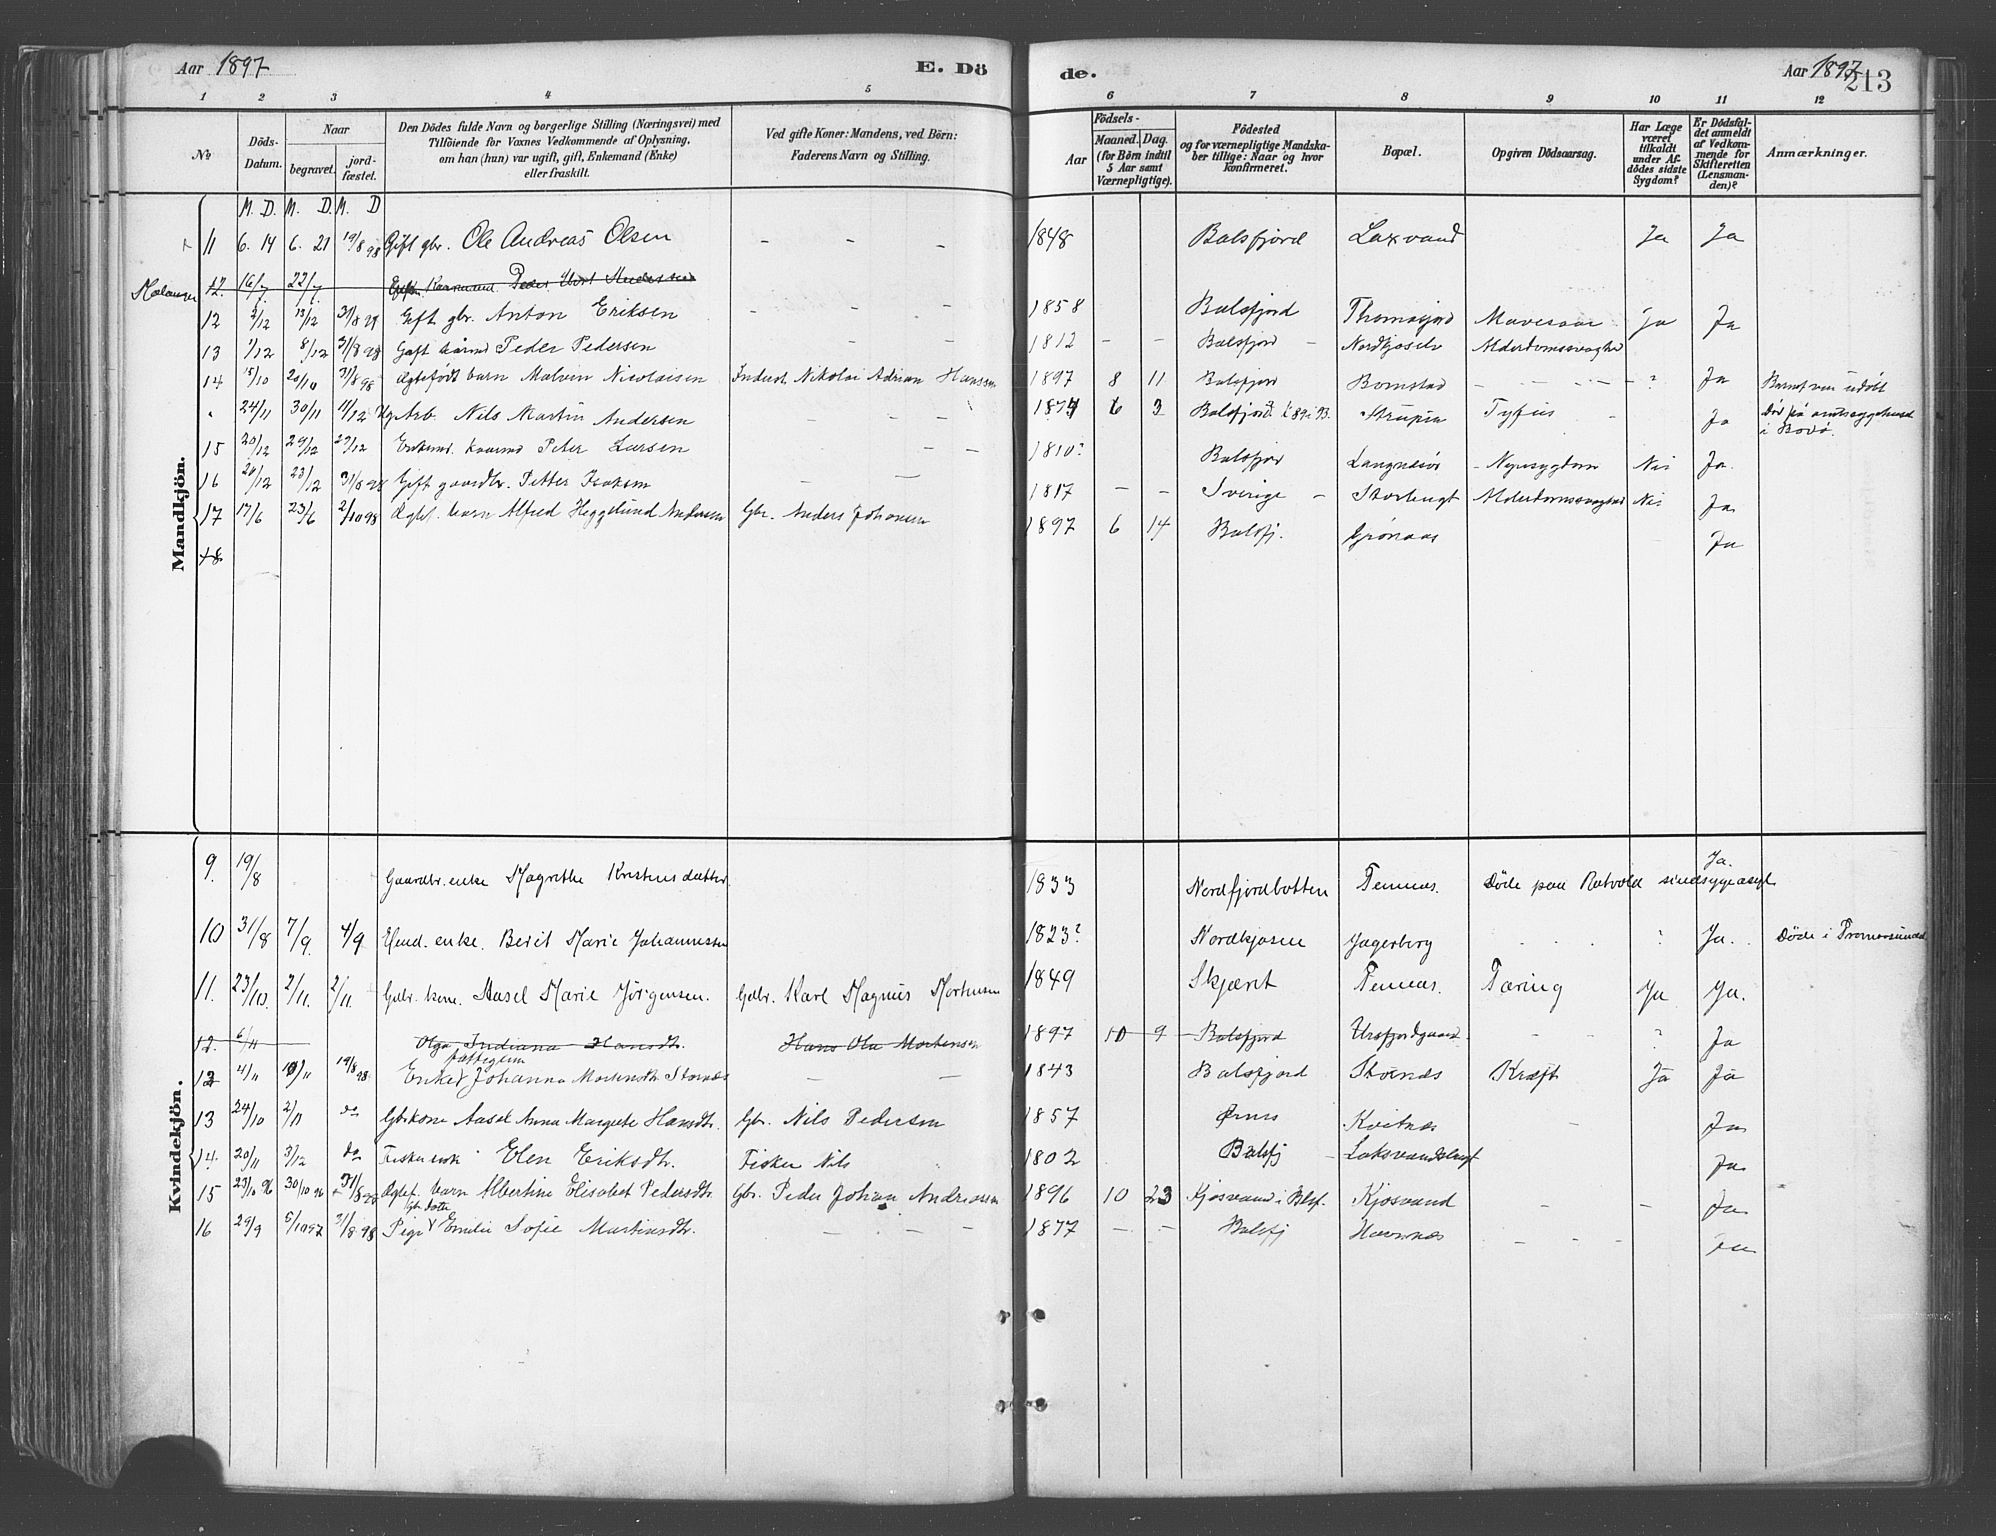 Aar 1897 E. Dö de. Aar 1897 213
1 2 3 4 5 6 7 8 9 10 11 12
No Döds-Datum. Naar begravet. jordfæstet. Den Dödes fulde Navn og borgerlige Stilling (Næringsvei) med Tilföiende for Voxnes Vedkommende af Oplysning, om han (hun) var ugift, gift, Enkemand (Enke) eller fraskilt. Ved gifte Koner: Mandens, ved Börn: Faderens Navn og Stilling. Födsels- Aar Maaned. Dag. (for Börn indtil 5 Aar samt Værnepligtige). Födested og for værnepligtige Mandskaber tillige: Naar og hvor konfirmeret. Bopæl. Opgiven Dödsaarsag. Har Læge været tilkaldt under Afdödes sidste Sygdom? Er Dödsfaldet anmeldt af Vedkommende for Skifteretten (Lensmanden)? Anmærkninger.
M. D. M. D. M. D
Mandkjön.
11 6. 14 6. 21 19/8 98 Gift gbr. Ole Andreas Olsen - - - 1848 Balsfjord Laxvand Ja Ja
Malangen 12. 16/7 22/7 Peder
12 2/12 13/12 31/8 Gift gbr. Anton Eriksen - - - 1858 Balsfjord Thomasjord Mavesaar Ja Ja
13 1/12 8/12 31/8 98 Gift Peder Pedersen - - 1812 - - Balsfjord - Nordkjoselv Alderdomssvaghed Ja
14 15/10 20/10 31/8 98 Ægtefödt barn Malvin Nicolaisen Inderst. Nikolai Adrian Hanssen 1897 8 11 Balsfjord Bomstad - - - - " Ja Barnet var udöbt
" 24/11 30/11 11/12 Ug. Arb. Nils Martin Andersen - - 1874 6 3 Balsfjord Strupen Tyfus - Ja Död på amtssygehuset i Bodö.
15 20/12 29/12 29/12 Enkemd. kaarmd Peter Larsen - - 1810? Balsfjord Langnesör - Nyresygdom Nei Ja.
16 20/12 23/12 31/8 98 Gift gaardbr. Petter Isaksen - - 1817 - - Sverige - Storbugt Alderdomssvaghed Nei Ja
17 17/6 23/6 2/10 98 Ægtef. barn Alfred Heggelund Andersen Gbr. Anders Johansen 1897 6 14 Balsfj. Grönaas Ja
18
Kvindekjön.
9. 19/8 Gaardbr. enke Magrethe Kristensdatter. 1833 Nordfjordbotten Tennes. Döde paa Rotvold sindssygeasyl Ja.
10 31/8 7/9 4/9 enke. Berit Marie Johannesen 1823? Nordkjosen Jagerberg . . . " Ja. Döde i Tromsösundet
11. 23/10. 2/11. 2/11 Gdbr. kone. Aasel Marie Jörgensen. Gdbr. Karl Magnus Mortensen 1849 Skjæret Tennes. Tæring Ja Ja.
12. 6/11 Olga Indiana Hansdt. Hans Ola Mortensen 1897 10 9 Balsfjord - - " Ja
12 4/11 10/11 19/8 98 fattiglem Enke Johanna Mortensdt. Stornes - - 1843 Balsfjord Stornes Kræft Ja Ja
13 24/10 2/11 do Gbrkone Aasel Anna Margrete Hansdt. Gbr. Nils Pedersen 1857 Örnes Kvitnes - Ja
14. 20/11 3/12 do Fisker enke Elen Eriksdt. Fisker Nils 1802 Balsfj - Laksvandsbugt Ja
15 23/10 96 30/10 96 31/8 98 Ægtef. barn Albertine Elisabet Pedersdt. Gbr. Peder Johan Andreassen 1896 10 23 Kjosvand i Blsf. Kjosvand - - Ja
16 29/9 5/10 97 31/8 98 Pige Gbr datter Emilie Sofie Martinsdt. - - - 1877 - - Balsfj Havnnes - - - Ja